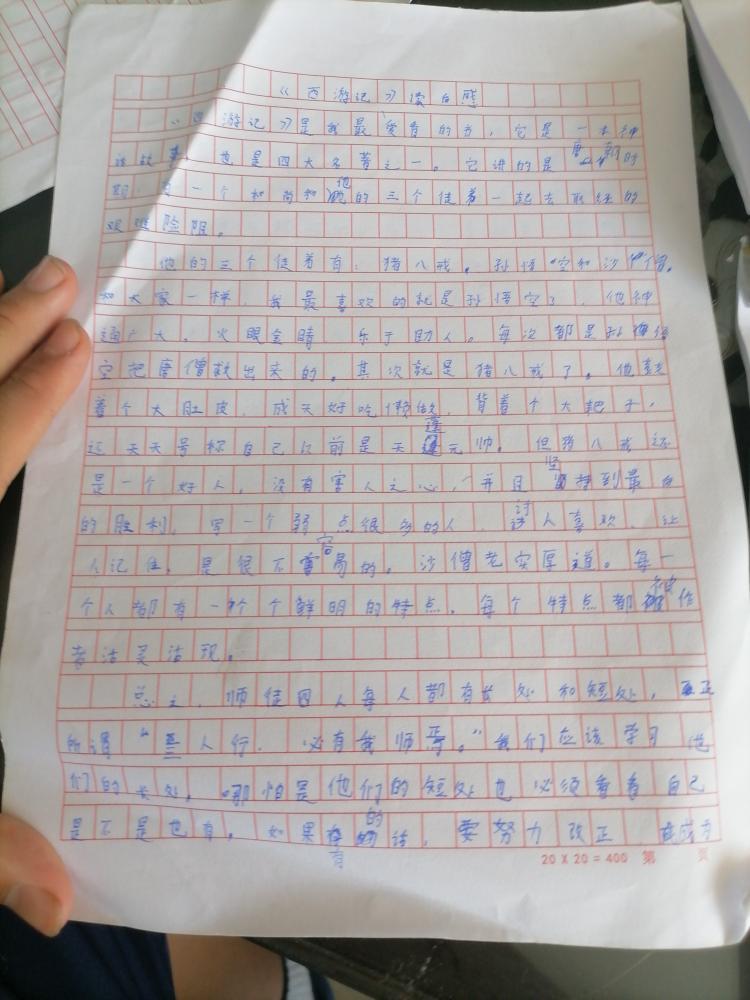 《西游记》读自感
《西游记》是我最爱看的书，它是一本神
话故事，也是四大名著之一。它讲的是唐朝时
期，有一个和尚和他的三个徒弟一起去取经的
艰难险阻。
他的三个徒弟有：猪八戒。孙悟空和沙僧。
和大家一样，我最喜欢的就是孙悟空了，他神
通广大。火眼金睛 乐于助人。每次都是孙悟
空把唐僧救出来的。其次就是猪八戒了。他挺
着个大肚皮，成天好吃懒做，背着个大耙子，
还天天号称自己以前是天蓬元帅。但猪八戒还
是一个好人，没有害人之心，并且坚持到最后
的胜利，写一个弱点很多的人，讨人喜欢，让
人记住，是很不容易的。沙僧老实厚道。每一
个人都有一个个鲜明的特点，每个特点都被作
者活灵活现。
总之，师徒四人每人都有长处和短处，正
所谓“三人行，必有我师焉。”我们应该学习他
们的长处，哪怕是他们的短处也必须看看自己
是不是也有，如果有的话，要努力改正，
20×20=400 第 页